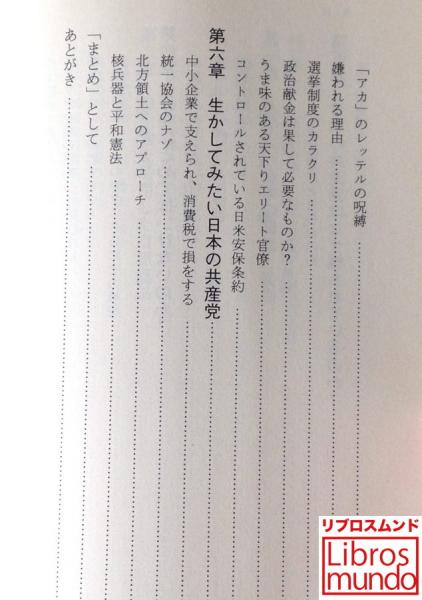 「アカ」のレッテルの呪縛
嫌われる理由
選挙制度のカラクリ
政治献金は果して必要なものか?
うま味のある天下りエリート官僚
コントロールされている日米安保条約
第六章 生かしてみたい日本の共産党
中小企業で支えられ、消費税で損をする
統一協会のナゾ
北方領土へのアプローチ
核兵器と平和憲法
「まとめ」として
あとがき
リブロスムンド
Libros
mundo